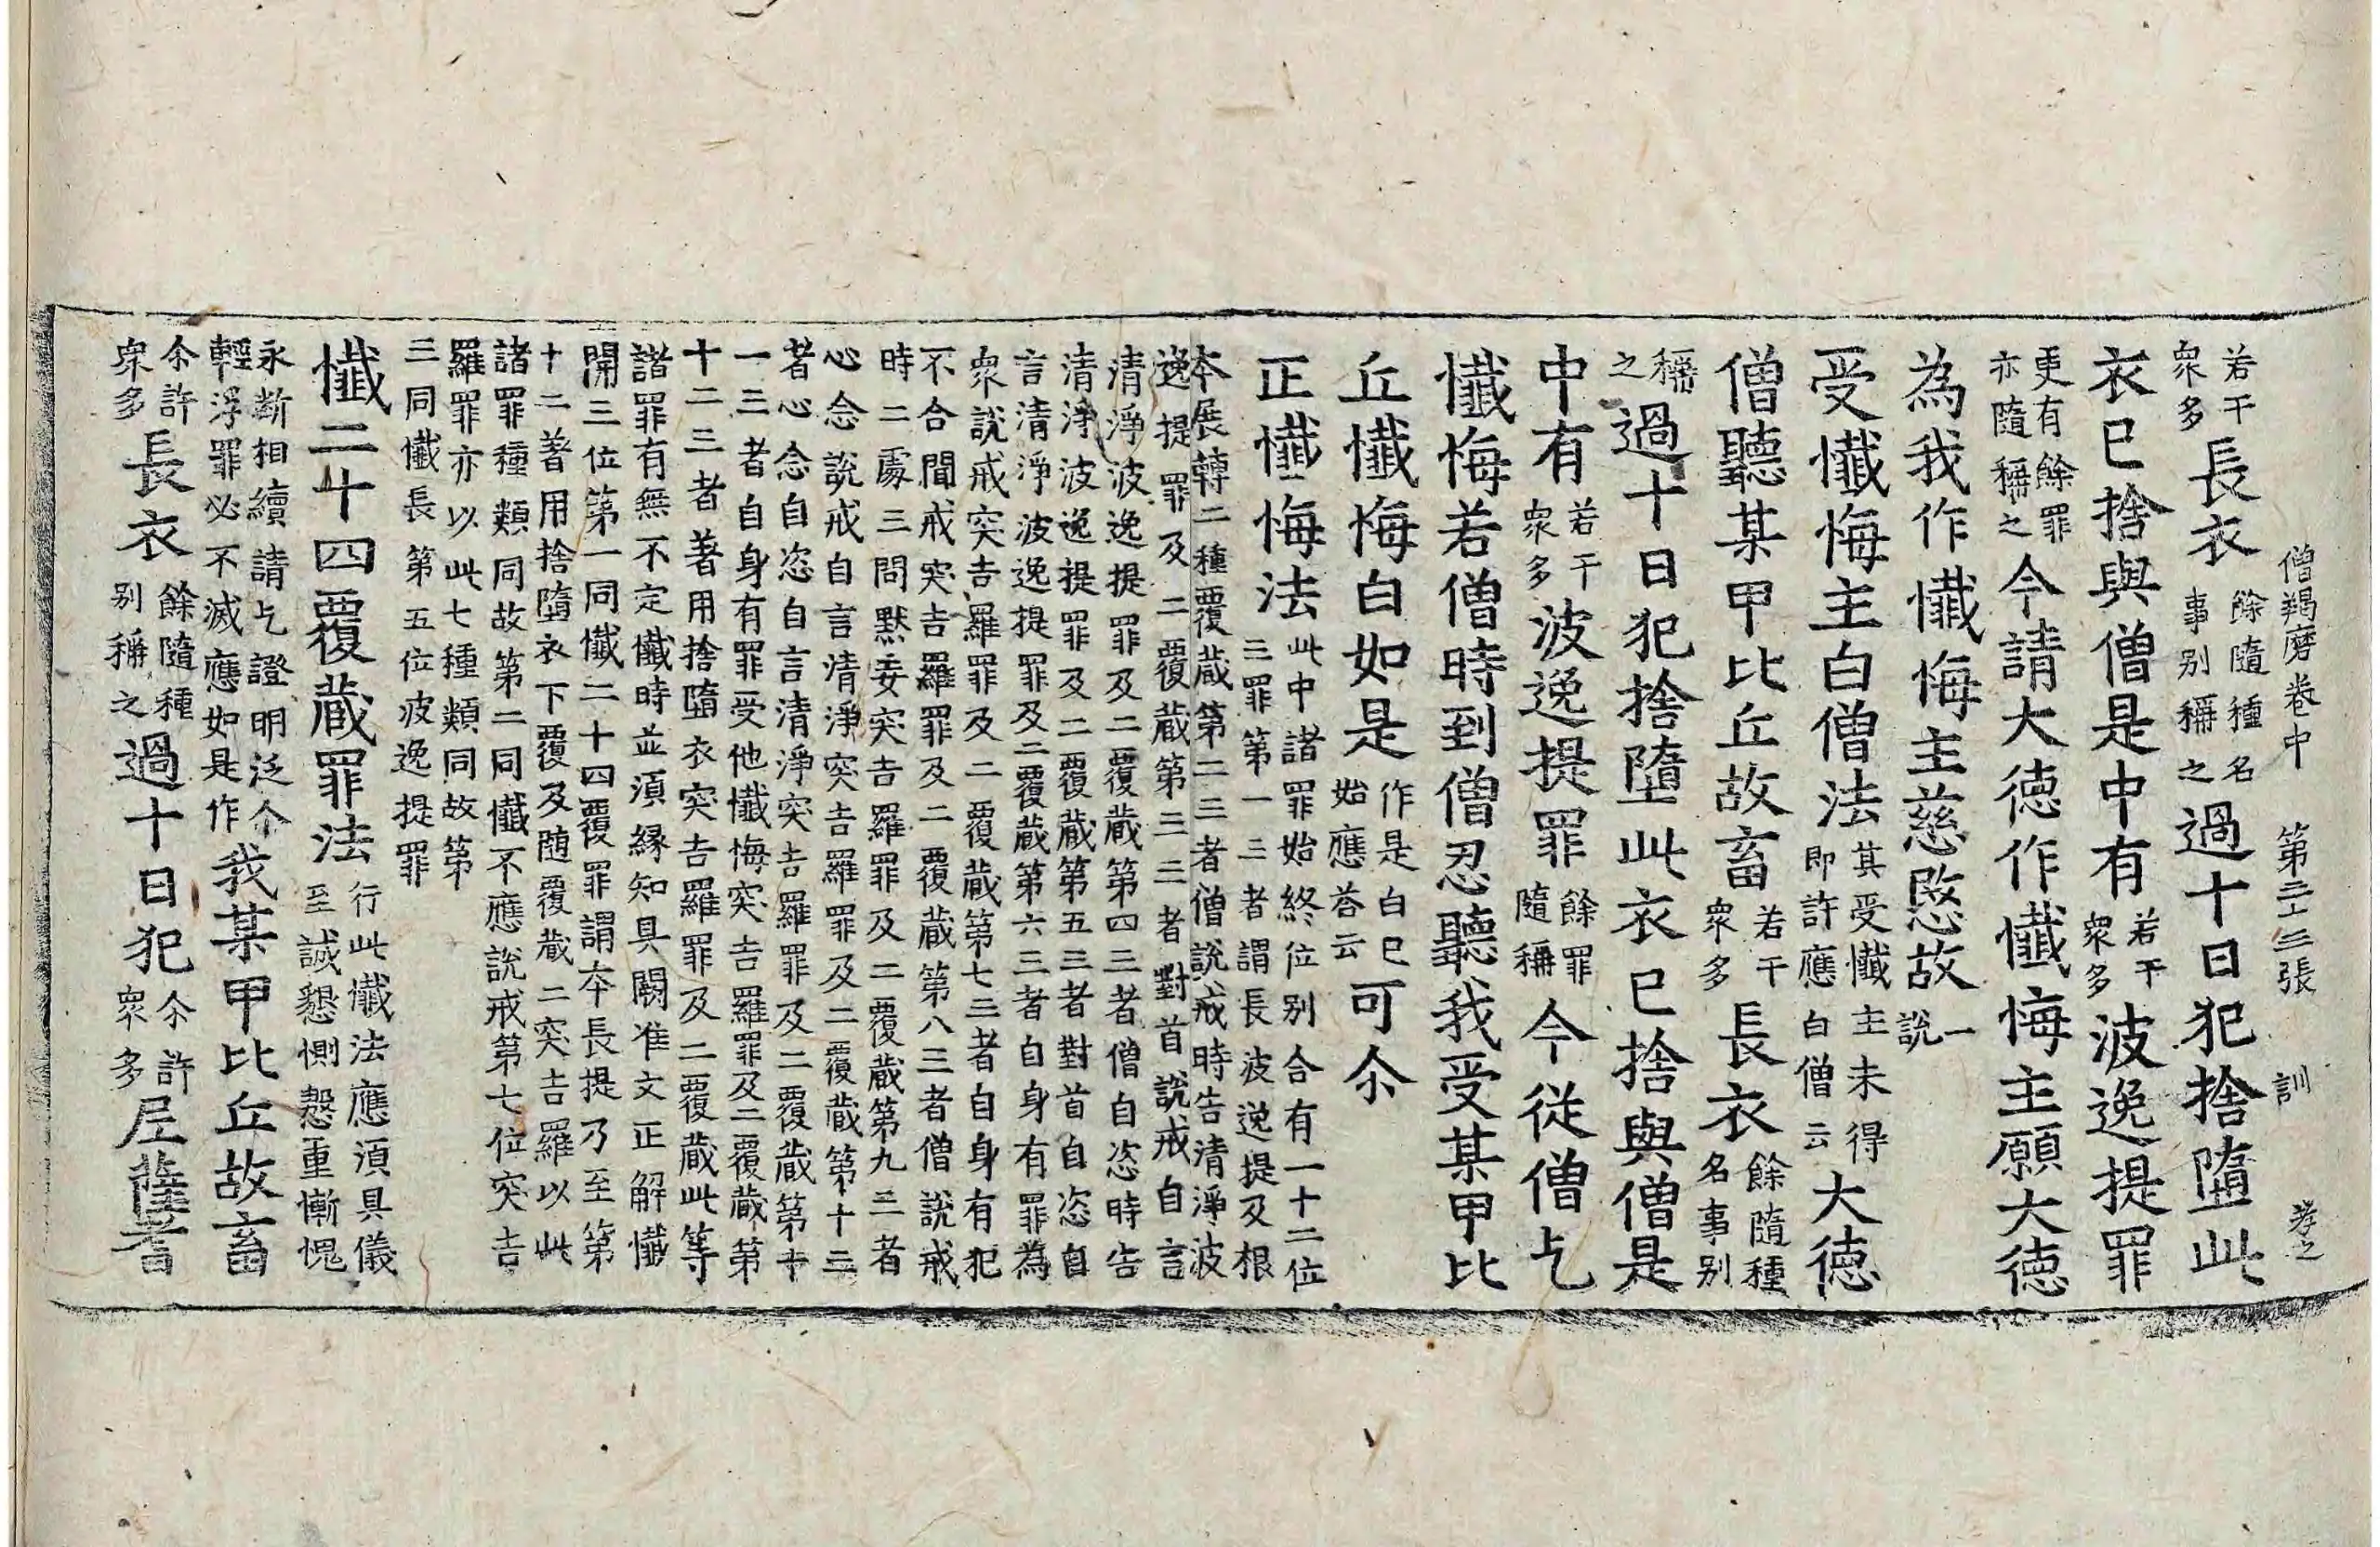 僧羯磨卷中　第二十三張　訓　孝之
若干衆多長衣餘隨種名事別稱之過十日犯捨墮此
衣已捨與僧是中有若干衆多波逸提罪
更有餘罪亦隨稱之今請大德作懺悔主願大德
為我作懺悔主慈愍故一說
受懺悔主白僧法其受懺主未得即許應白僧云大德
僧聽某甲比丘故畜若干衆多長衣餘隨種名事別
稱之過十日犯捨墮此衣已捨與僧是
中有若干衆多波逸提罪餘罪隨稱今從僧乞
懺悔若僧時到僧忍聽我受某甲比
丘懺悔白如是作是白已始應荅云可尒
正懺悔法此中諸罪始終位別合有一十二位
三罪第一三者謂長波逸提及根
本展轉二種覆藏第二三者僧說戒時告清淨波
逸提罪及二覆藏第三三者對首說戒自言
清淨波逸提罪及二覆藏第四三者僧自恣時告
清淨波逸提罪及二覆藏第五三者對首自恣自
言清淨波逸提罪及二覆藏第六三者自身有罪為
衆說戒突吉羅罪及二覆藏第七三者自身有犯
不合聞戒突吉羅罪及二覆藏第八三者僧說戒
時二處三問默妄突吉羅罪及二覆藏第九三者
心念說戒自言清淨突吉羅罪及二覆藏第十三
者心念自恣自言清淨突吉羅罪及二覆藏第十
一三者自身有罪受他懺悔突吉羅罪及二覆藏第
十二三者著用捨墮衣突吉羅罪及二覆藏此等
諸罪有無不定懺時並須緣知具闕准文正解懺
開三位第一同懺二十四覆罪謂本長提乃至第
十二著用捨墮衣下覆及隨覆藏二突吉羅以此
諸罪種類同故第二同懺不應說戒第七位突吉
羅罪亦以此七種類同故第
三同懺長第五位波逸提罪
懺二十四覆藏罪法行此懺法應須具儀至誠懇惻慇重慚愧
永斷相續請乞證明泛尒輕浮罪必不滅應如是作我某甲比丘故畜
尒許衆多長衣餘隨種別稱之過十日犯尒許衆多尼薩耆